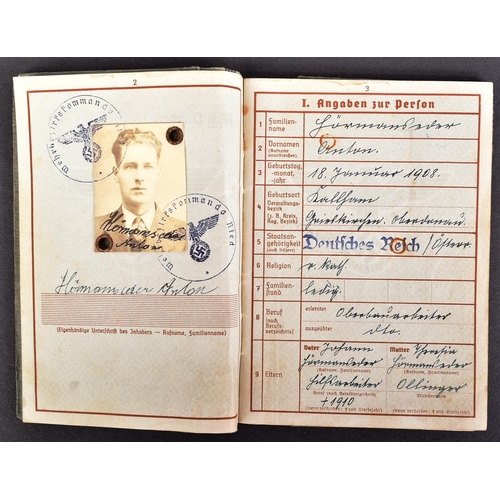 2
Wehrbezirkskommando
Hörmanseder
Anton
Wehrbezirkskommando Ried
Hörmanseder Anton
(Eigenhändige Unterschrift des Inhabers — Rufname, Familienname)
3
I. Angaben zur Person
1 Familien-
name
Hörmanseder
2 Vornamen
(Rufname
unterstreichen)
Anton.
3 Geburtstag,
-monat,
-jahr
18. Januar 1908.
4 Geburtsort
Verwaltungs-
bezirk
(z. B. Kreis,
Reg. Bezirk)
Kallham
Grieskirchen. Oberdonau.
5 Staatsan-
gehörigkeit
(auch frühere)
Deutsches Reich /Österr.
6 Religion
r. kath.
7 Familien-
stand
ledig.
8 Beruf
(nach
Berufs-
verzeichnis)
erlernter
Oberbauarbeiter
ausgeübter
dto.
9 Eltern
Vater Johann
Hörmanseder
(Rufname, Familienname)
Hilfsarbeiter
Beruf (nach Berufsverzeichnis)
† 1910
(wenn verstorben: † und Sterbejahr)
Mutter Theresia
Hörmanseder
(Rufname, Familienname)
Ollinger
(Mädchenname)
(wenn verstorben: † und Sterbejahr)